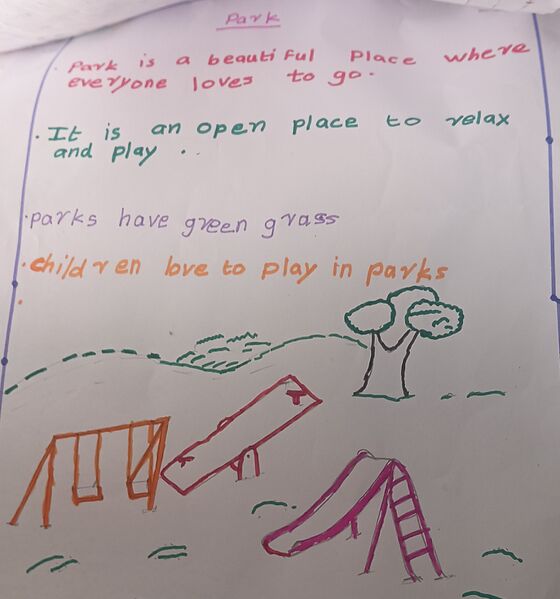 Park
. Park is a beautiful Place where
everyone loves to go.
. It is an open place to relax
and play ..
. parks have green grass
. children love to play in parks
.